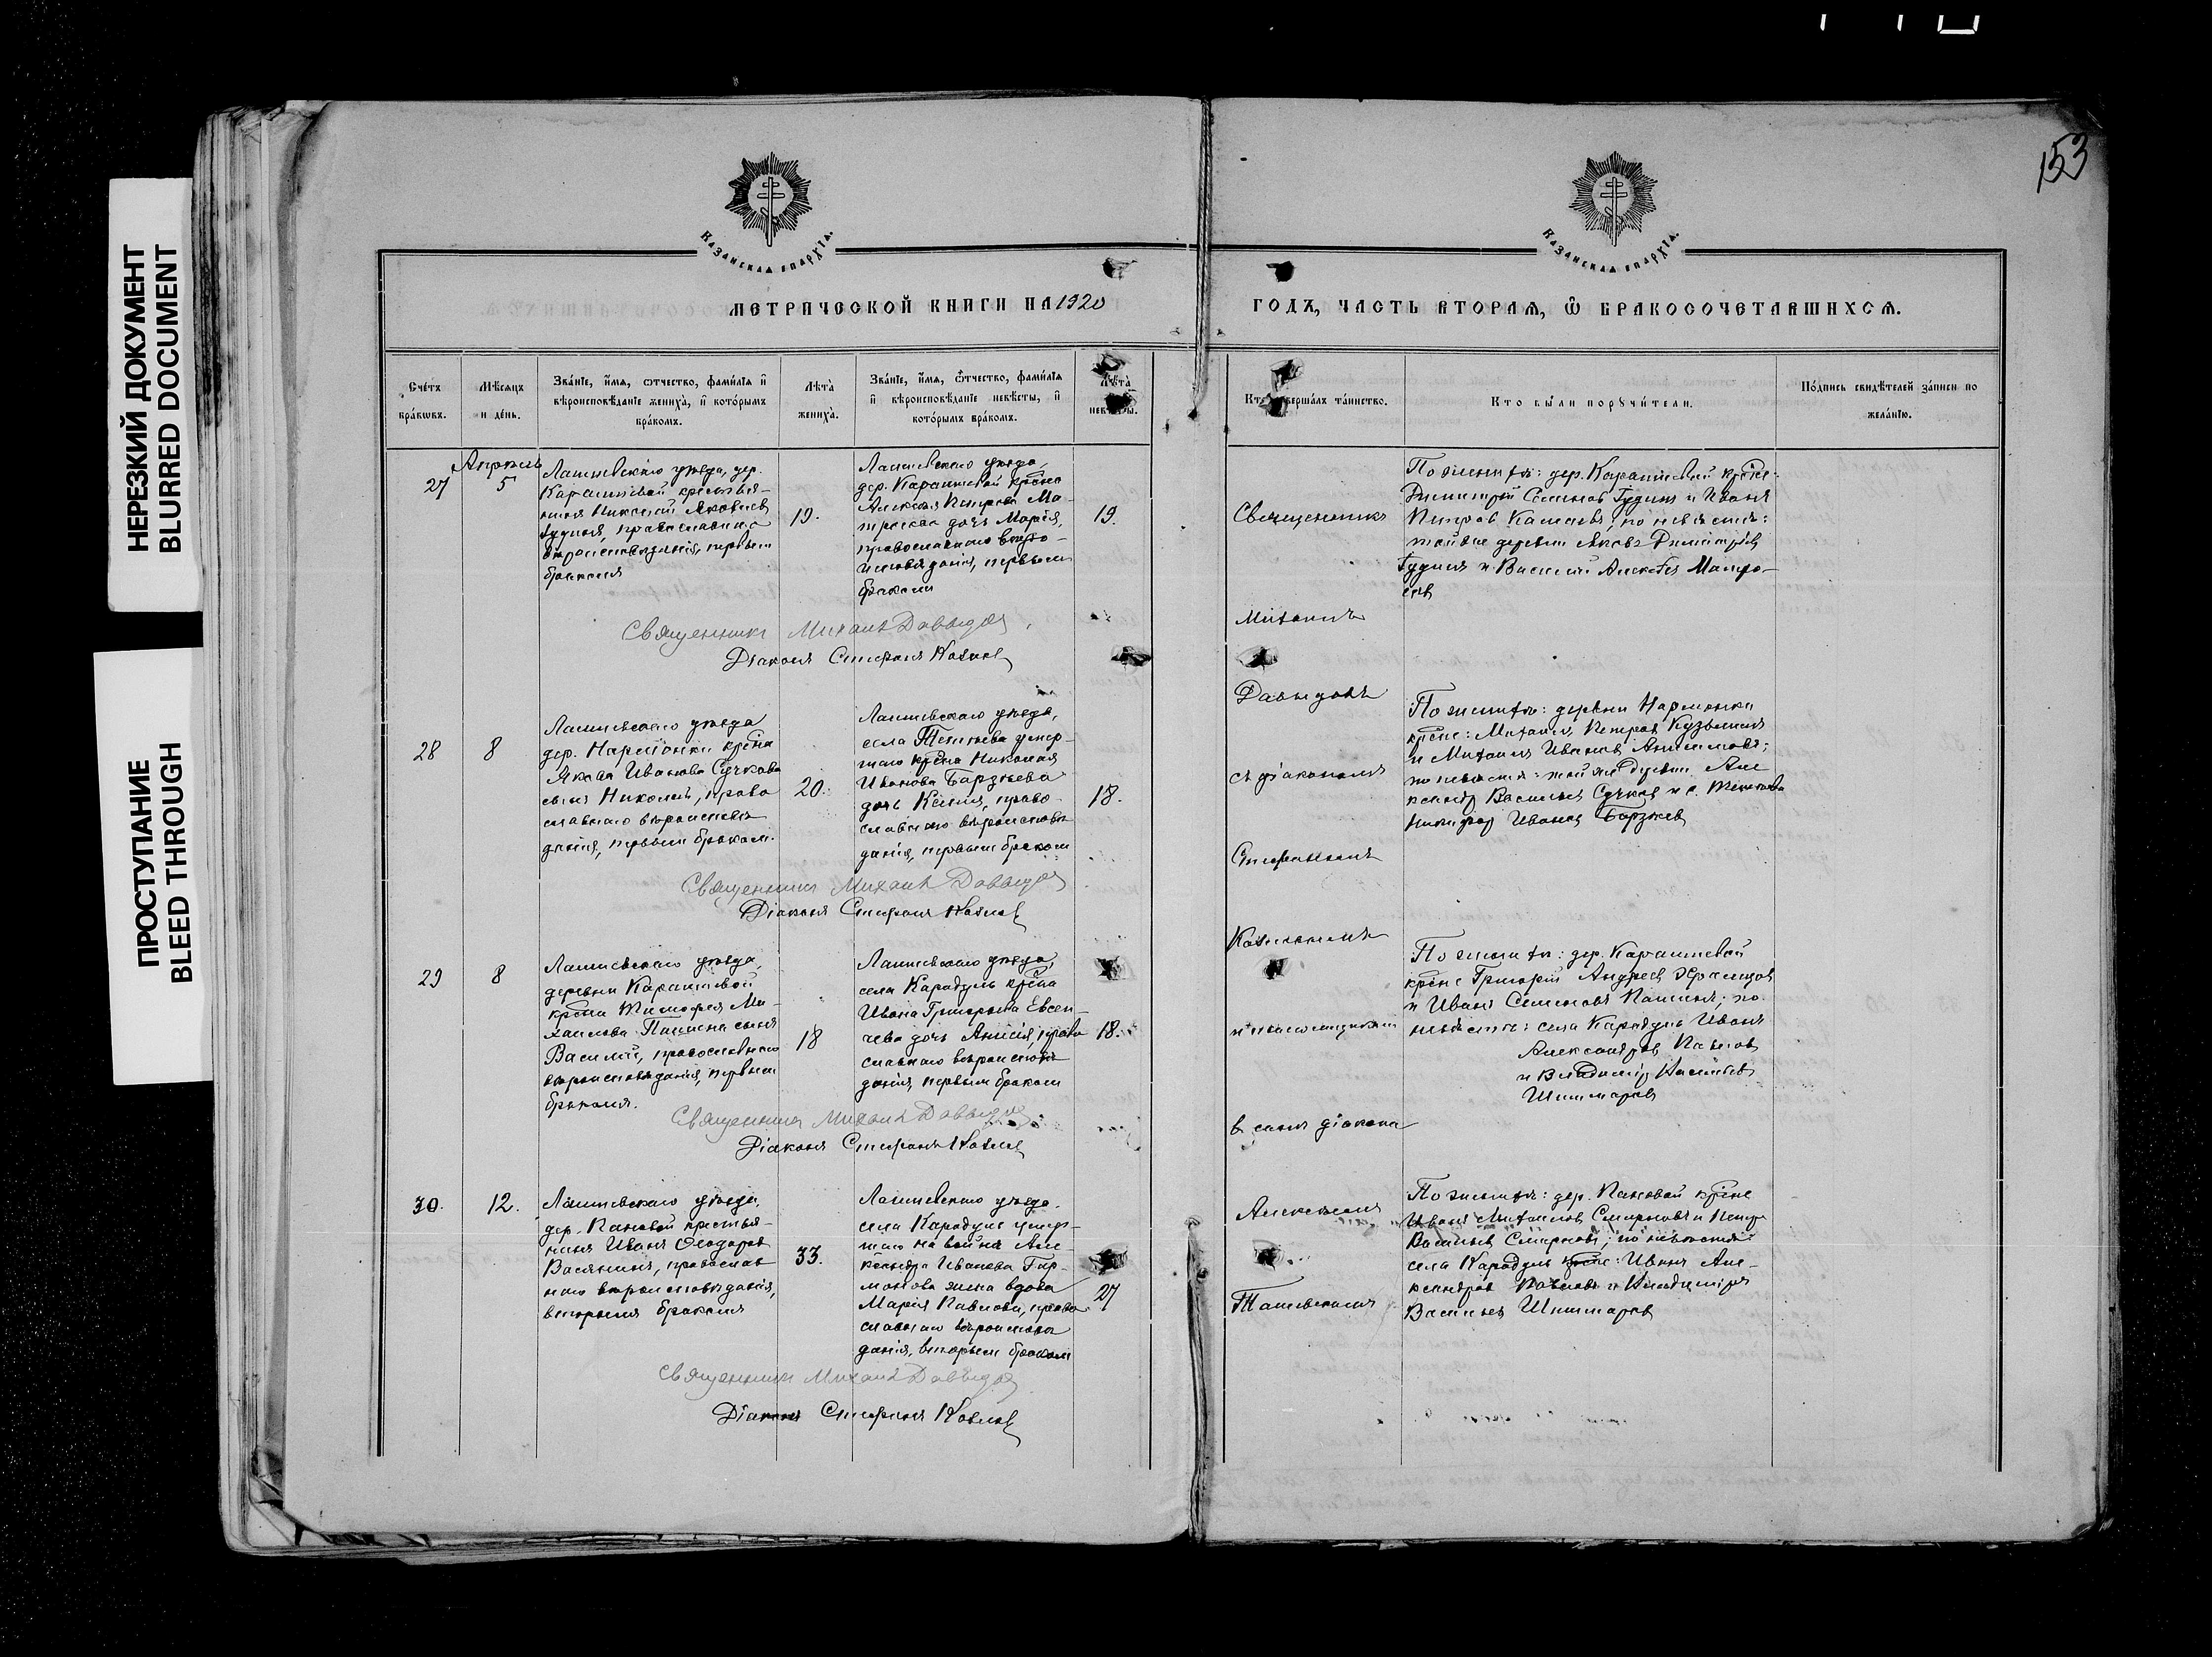 НЕРЕЗКИЙ ДОКУМЕНТ
BLURRED DOCUMENT
ПРОСТУПАНИЕ
BLEED THROUGH
153
Казанская епархїа.
Казанская епархїа.
МЕТРИЧЕСКОЙ КНИГИ НА 1920
ГОДЪ, ЧАСТЬ ВТОРАЯ, Ѿ БРАКОСОЧЕТАВШИХСЯ.
Счетъ
браковъ.
Мѣсяцъ
и день.
Званіе, имя, отчество, фамилія и
вѣроисповѣданіе жениха, и которымъ
бракомъ.
Лѣта
жениха.
Званіе, имя, отчество, фамилія
и вѣроисповѣданіе невѣсты, и
которымъ бракомъ.
Лѣта
невѣсты.
Кто совершалъ таинство.
Кто были поручители.
Подпись свидѣтелей записи по
желанію.
27
Апрѣль
5
Лаишевскаго уѣзда, дер.
Караишевой крестья-
нинъ Николай Яковлев
Гудинъ, православнаго
вѣроисповѣданія, первым
бракомъ
19.
Лаишевскаго уѣзда,
дер. Караишевой крсна
Алексѣя Петрова Ма-
трос дочь Марія,
православнаго вѣро-
исповѣданія, первым
браком
19.
Священникъ
По женихѣ: дер. Караишевой крсне
Димитрій Семенов Гудинъ и Иванъ
Петров по невѣстѣ:
той же деревни Яковъ Димитріев
Гудинъ и Василий Алексѣев Матро-
сов
Священникъ Михаилъ Давыдов
Діаконъ Стефанъ Козлов
Михаилъ
Давыдовъ
28
8
Лаишевскаго уѣзда
дер. Нармонки крсна
Якова Иванова Сучкова
сынъ Николай, право
славнаго вѣроисповѣ
данія, первым браком.
20.
Лаишевскаго уѣзда,
села Тетеева умер-
шаго крсна Николая
Иванова Барзаева
дочь Ксенія, право-
славнаго вѣроисповѣ
данія, первым браком
18.
съ діакономъ
Стефаномъ
По женихѣ: деревни Нармонки
крсне: Михаилъ Петров Кузьминъ
и Михаилъ Иванов Анисимовъ;
по невѣстѣ: той же Деревни Але
ксандр Васильев Сучков и с. Тетеева
Никифор Иванов Барзаев
Священникъ Михаилъ Давыдов
Діаконъ Стефанъ Козлов
Козловымъ
29
8
Лаишевскаго уѣзда,
деревни Караишевой
крсна Тимофея Ми-
хаилова Панина сынъ
Василий, православнаго
вѣроисповѣданія, первым
бракомъ.
18
Лаишевскаго уѣзда,
села Карадулъ крсна
Ивана Григорьева Евсе-
чева дочь Анисія, право
славнаго вѣроисповѣ
данія, первым браком
18.
и псаломщикомъ
в санѣ діакона
По женихѣ: дер. Караишевой
крсне Григорій Андреев
и Иванъ Семеновъ Панинъ; по
невѣстѣ: села Карадулъ Иванъ
Александров Павлов
и Владимір
Шишмарев
Священникъ Михаилъ Давыдов
Діаконъ Стефанъ Козлов
30.
12.
Лаишевскаго уѣзда,
дер. Пановой крестья-
нинъ Иванъ Ѳеодоров
Васянинъ, православ
наго вѣроисповѣданія,
вторымъ бракомъ
33.
Лаишевскаго уѣзда.
села Карадулъ умер-
шаго на войнѣ Але-
ксандра Иванова Гор-
жена вдова
Марія Павлова, право
славнаго вѣроисповѣ
данія, вторым браком
27
Алексѣемъ
По женихѣ: дер. Пановой крсне
Иванъ Михаилов Смирновъ и Петръ
Васильев Смирновъ; по невѣстѣ
села Карадулъ крсне: Иванъ Але-
ксандров Павловъ и Владиміръ
Васильев Шишмарев
Священникъ Михаилъ Давыдов
Діаконъ Стефанъ Козлов